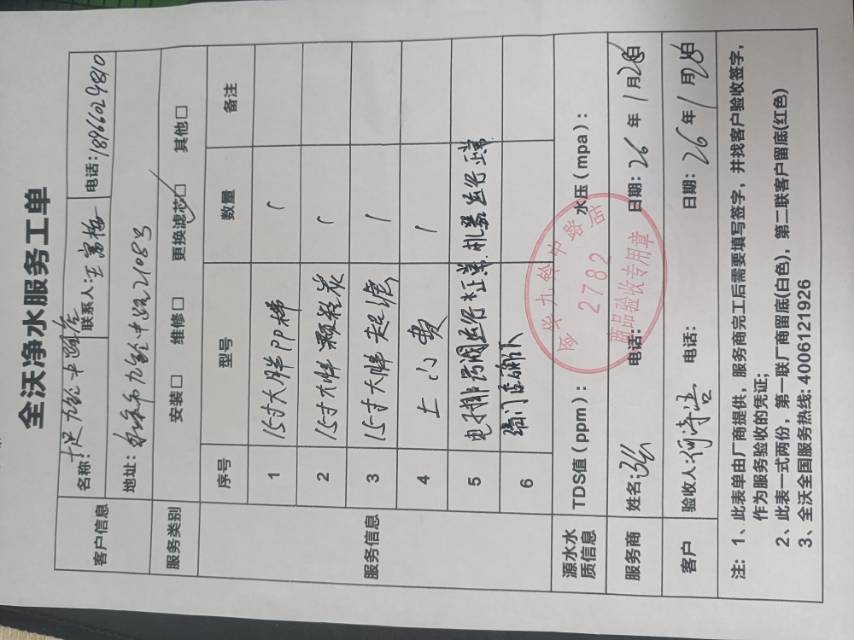 全沃净水服务工单
客户信息
名称: 九龄中路店 联系人: 王富梅 电话: 18966029810
地址: 九龄中路2108号
服务类别 安装□ 维修□ 更换滤芯□ 其他□
服务信息
序号 型号 数量 备注
1 15寸大胖PP棉 1
2 15寸大胖颗粒炭 1
3 15寸大胖 1
4 上门费 1
5 运行正常 机器运行正常
6 门店确认
源水水质信息 TDS值(ppm): 水压(mpa):
服务商 姓名: 张 电话: 日期: 26年1月28日
客户 验收人: 电话: 日期: 26年1月28日
九龄中路店
2782
商品验收专用章
注: 1、此表单由厂商提供,服务商完工后需要填写签字,并找客户验收签字,
作为服务验收的凭证;
2、此表一式两份,第一联厂商留底(白色),第二联客户留底(红色)
3、全沃全国服务热线: 4006121926